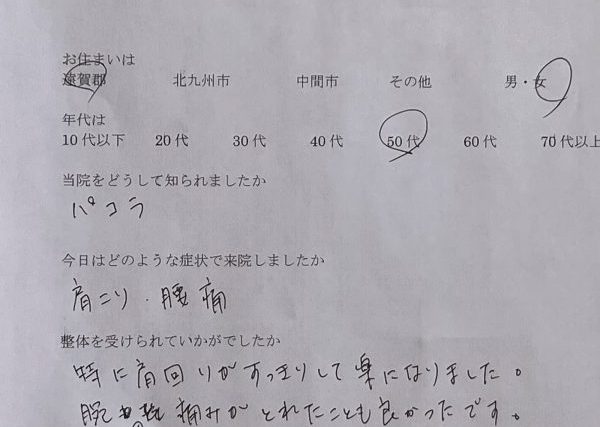 お住まいは
遠賀郡 北九州市 中間市 その他 男・女
年代は
10代以下 20代 30代 40代 50代 60代 70代以上
当院をどうして知られましたか
パコラ
今日はどのような症状で来院しましたか
肩こり・腰痛
整体を受けられていかがでしたか
特に肩回りがすっきりして楽になりました。
腕 痛みがとれたことも良かったです。